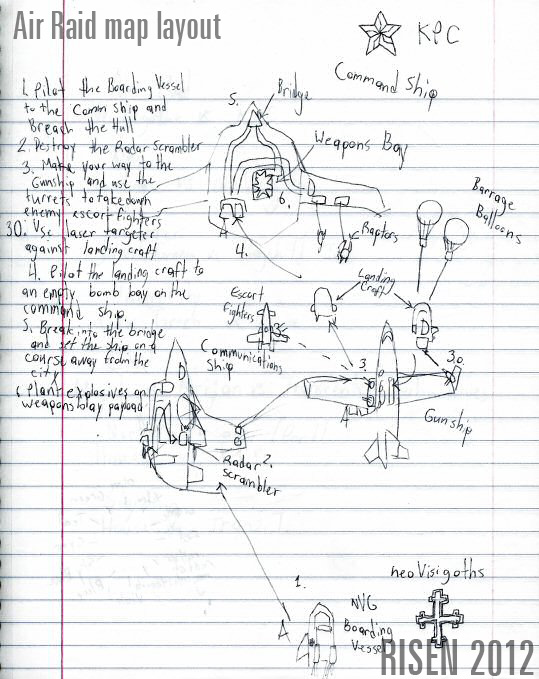 Air Raid map layout
KPC
Command Ship
1. Pilot the Boarding Vessel
to the Comm Ship and
Breach the Hull
2. Destroy the Radar Scrambler
3. Make your way to the
Gunship and use the
turrets to takedown
enemy escort fighters
30. Use laser targeter
against landing craft
4. Pilot the landing craft to
an empty bomb bay on the
command ship.
5. Break into the bridge
and set the ship on a
course away from the
city
6. Plant explosives on
weapons bay payload
5.
Bridge
Weapons Bay
6.
D
A
4.
Raptors
Barrage
Balloons
Landing
Craft
Escort
Fighters
Communications
Ship
D
3.
D
3o.
A
Gunship
Radar 2.
Scrambler
1.
A
NVG
Boarding
Vessel
neoVisigoths
RISEN 2012